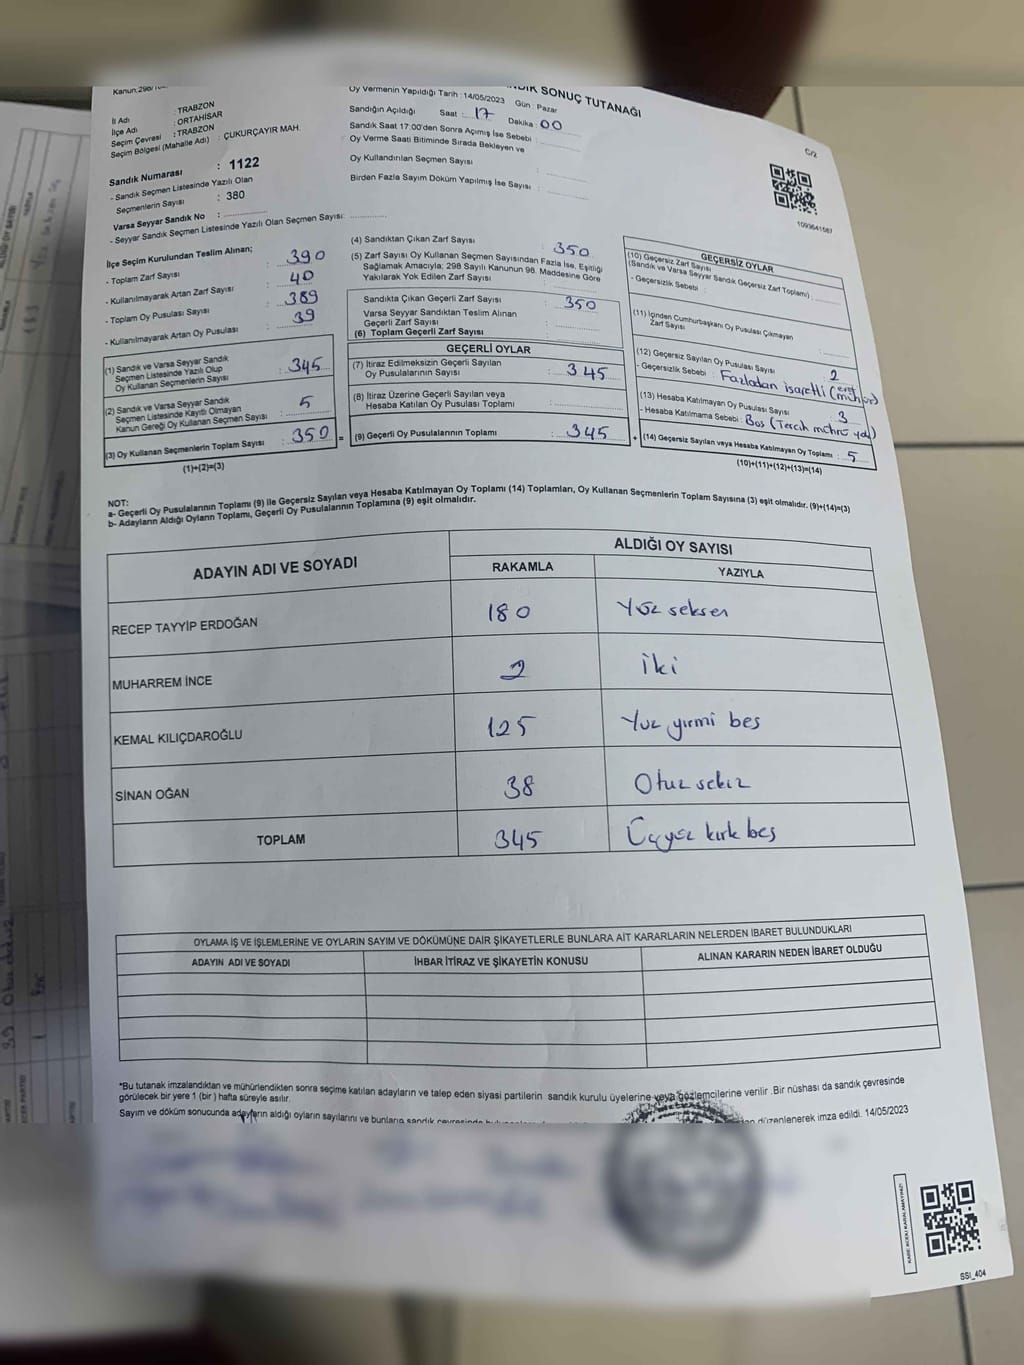 Oy Vermenin Yapıldığı Tarih : 14/05/2023 Gün : Pazar
SONUÇ TUTANAĞI
İl Adı : TRABZON
İlçe Adı : ORTAHİSAR
Seçim Çevresi : TRABZON
Seçim Bölgesi (Mahalle Adı) : ÇUKURÇAYIR MAH.
Sandık Numarası : 1122
- Sandık Seçmen Listesinde Yazılı Olan
Seçmenlerin Sayısı : 380
Varsa Seyyar Sandık No :
- Seyyar Sandık Seçmen Listesinde Yazılı Olan Seçmen Sayısı:
Sandığın Açıldığı Saat : 17 Dakika : 00
Sandık Saat 17:00'den Sonra Açımış İse Sebebi :
Oy Verme Saati Bitiminde Sırada Bekleyen ve
Oy Kullandırılan Seçmen Sayısı :
Birden Fazla Sayım Döküm Yapılmış İse Sayısı :
C/2
İlçe Seçim Kurulundan Teslim Alınan;
- Toplam Zarf Sayısı : 390
- Kullanılmayarak Artan Zarf Sayısı : 40
- Toplam Oy Pusulası Sayısı : 389
- Kullanılmayarak Artan Oy Pusulası : 39
(1) Sandık ve Varsa Seyyar Sandık
Seçmen Listesinde Yazılı Olup
Oy Kullanan Seçmenlerin Sayısı : 345
(2) Sandık ve Varsa Seyyar Sandık
Seçmen Listesinde Kayıtlı Olmayan
Kanun Gereği Oy Kullanan Seçmen Sayısı : 5
(3) Oy Kullanan Seçmenlerin Toplam Sayısı : 350
(1)+(2)=(3)
(4) Sandıktan Çıkan Zarf Sayısı : 350
(5) Zarf Sayısı Oy Kullanan Seçmen Sayısından Fazla İse, Eşitliği
Sağlamak Amacıyla; 298 Sayılı Kanunun 98. Maddesine Göre
Yakılarak Yok Edilen Zarf Sayısı :
Sandıkta Çıkan Geçerli Zarf Sayısı : 350
Varsa Seyyar Sandıktan Teslim Alınan
Geçerli Zarf Sayısı :
(6) Toplam Geçerli Zarf Sayısı :
GEÇERLİ OYLAR
(7) İtiraz Edilmeksizin Geçerli Sayılan
Oy Pusulalarının Sayısı : 345
(8) İtiraz Üzerine Geçerli Sayılan veya
Hesaba Katılan Oy Pusulası Toplamı :
(9) Geçerli Oy Pusulalarının Toplamı : 345
GEÇERSİZ OYLAR
(10) Geçersiz Zarf Sayısı
(Sandık ve Varsa Seyyar Sandık Geçersiz Zarf Toplamı) :
- Geçersizlik Sebebi :
(11) İçinden Cumhurbaşkanı Oy Pusulası Çıkmayan
Zarf Sayısı :
(12) Geçersiz Sayılan Oy Pusulası Sayısı : 2
- Geçersizlik Sebebi : Fazladan isaretli
(13) Hesaba Katılmayan Oy Pusulası Sayısı : 3
- Hesaba Katılmama Sebebi : Bos (Tercih mührü yok)
(14) Geçersiz Sayılan veya Hesaba Katılmayan Oy Toplamı : 5
(10)+(11)+(12)+(13)=(14)
NOT:
a- Geçerli Oy Pusulalarının Toplamı (9) ile Geçersiz Sayılan veya Hesaba Katılmayan Oy Toplamı (14) Toplamları, Oy Kullanan Seçmenlerin Toplam Sayısına (3) eşit olmalıdır. (9)+(14)=(3)
b- Adayların Aldığı Oyların Toplamı, Geçerli Oy Pusulalarının Toplamına (9) eşit olmalıdır.
ADAYIN ADI VE SOYADI
ALDIĞI OY SAYISI
RAKAMLA YAZIYLA
RECEP TAYYİP ERDOĞAN 180 Yüz seksen
MUHARREM İNCE 2 İki
KEMAL KILIÇDAROĞLU 125 Yuz yirmi bes
SİNAN OĞAN 38 Otuz sekiz
TOPLAM 345 Üçyüz kırk beş
OYLAMA İŞ VE İŞLEMLERİNE VE OYLARIN SAYIM VE DÖKÜMÜNE DAİR ŞİKAYETLERLE BUNLARA AİT KARARLARIN NELERDEN İBARET BULUNDUKLARI
ADAYIN ADI VE SOYADI İHBAR İTİRAZ VE ŞİKAYETİN KONUSU ALINAN KARARIN NEDEN İBARET OLDUĞU
*Bu tutanak imzalandıktan ve mühürlendikten sonra seçime katılan adayların ve talep eden siyasi partilerin sandık kurulu üyelerine veya gözlemcilerine verilir .Bir nüshası da sandık çevresinde
görülecek bir yere 1 (bir ) hafta süreyle asılır.
Sayım ve döküm sonucunda adayların aldığı oyların sayılarını ve bunlara düzenlenerek imza edildi. 14/05/2023
SSI_404